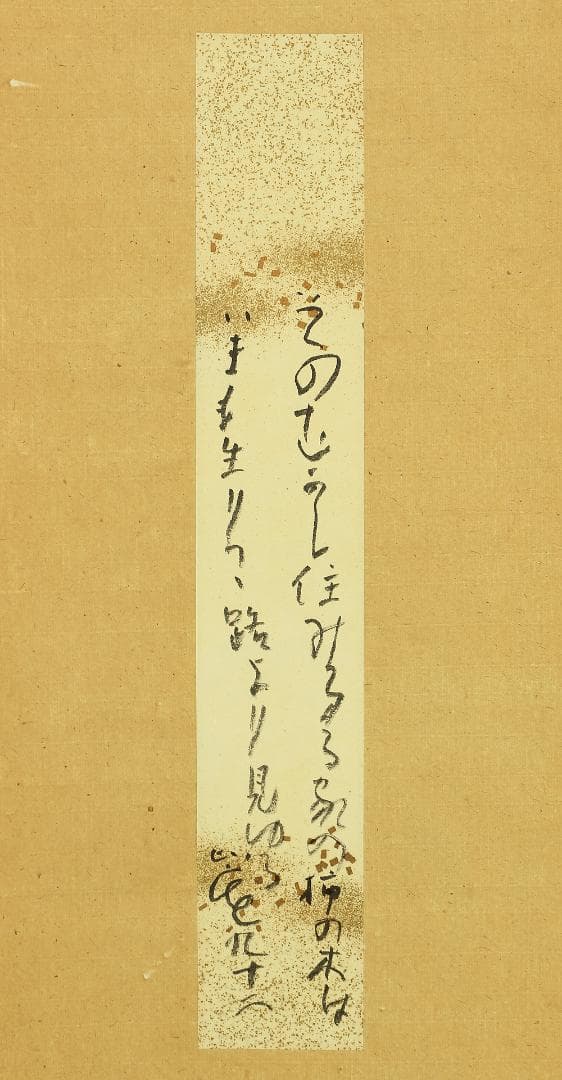 そのむかし住みゐたる家の柿の木は
いまも生りつゝ路より見ゆる
九十二